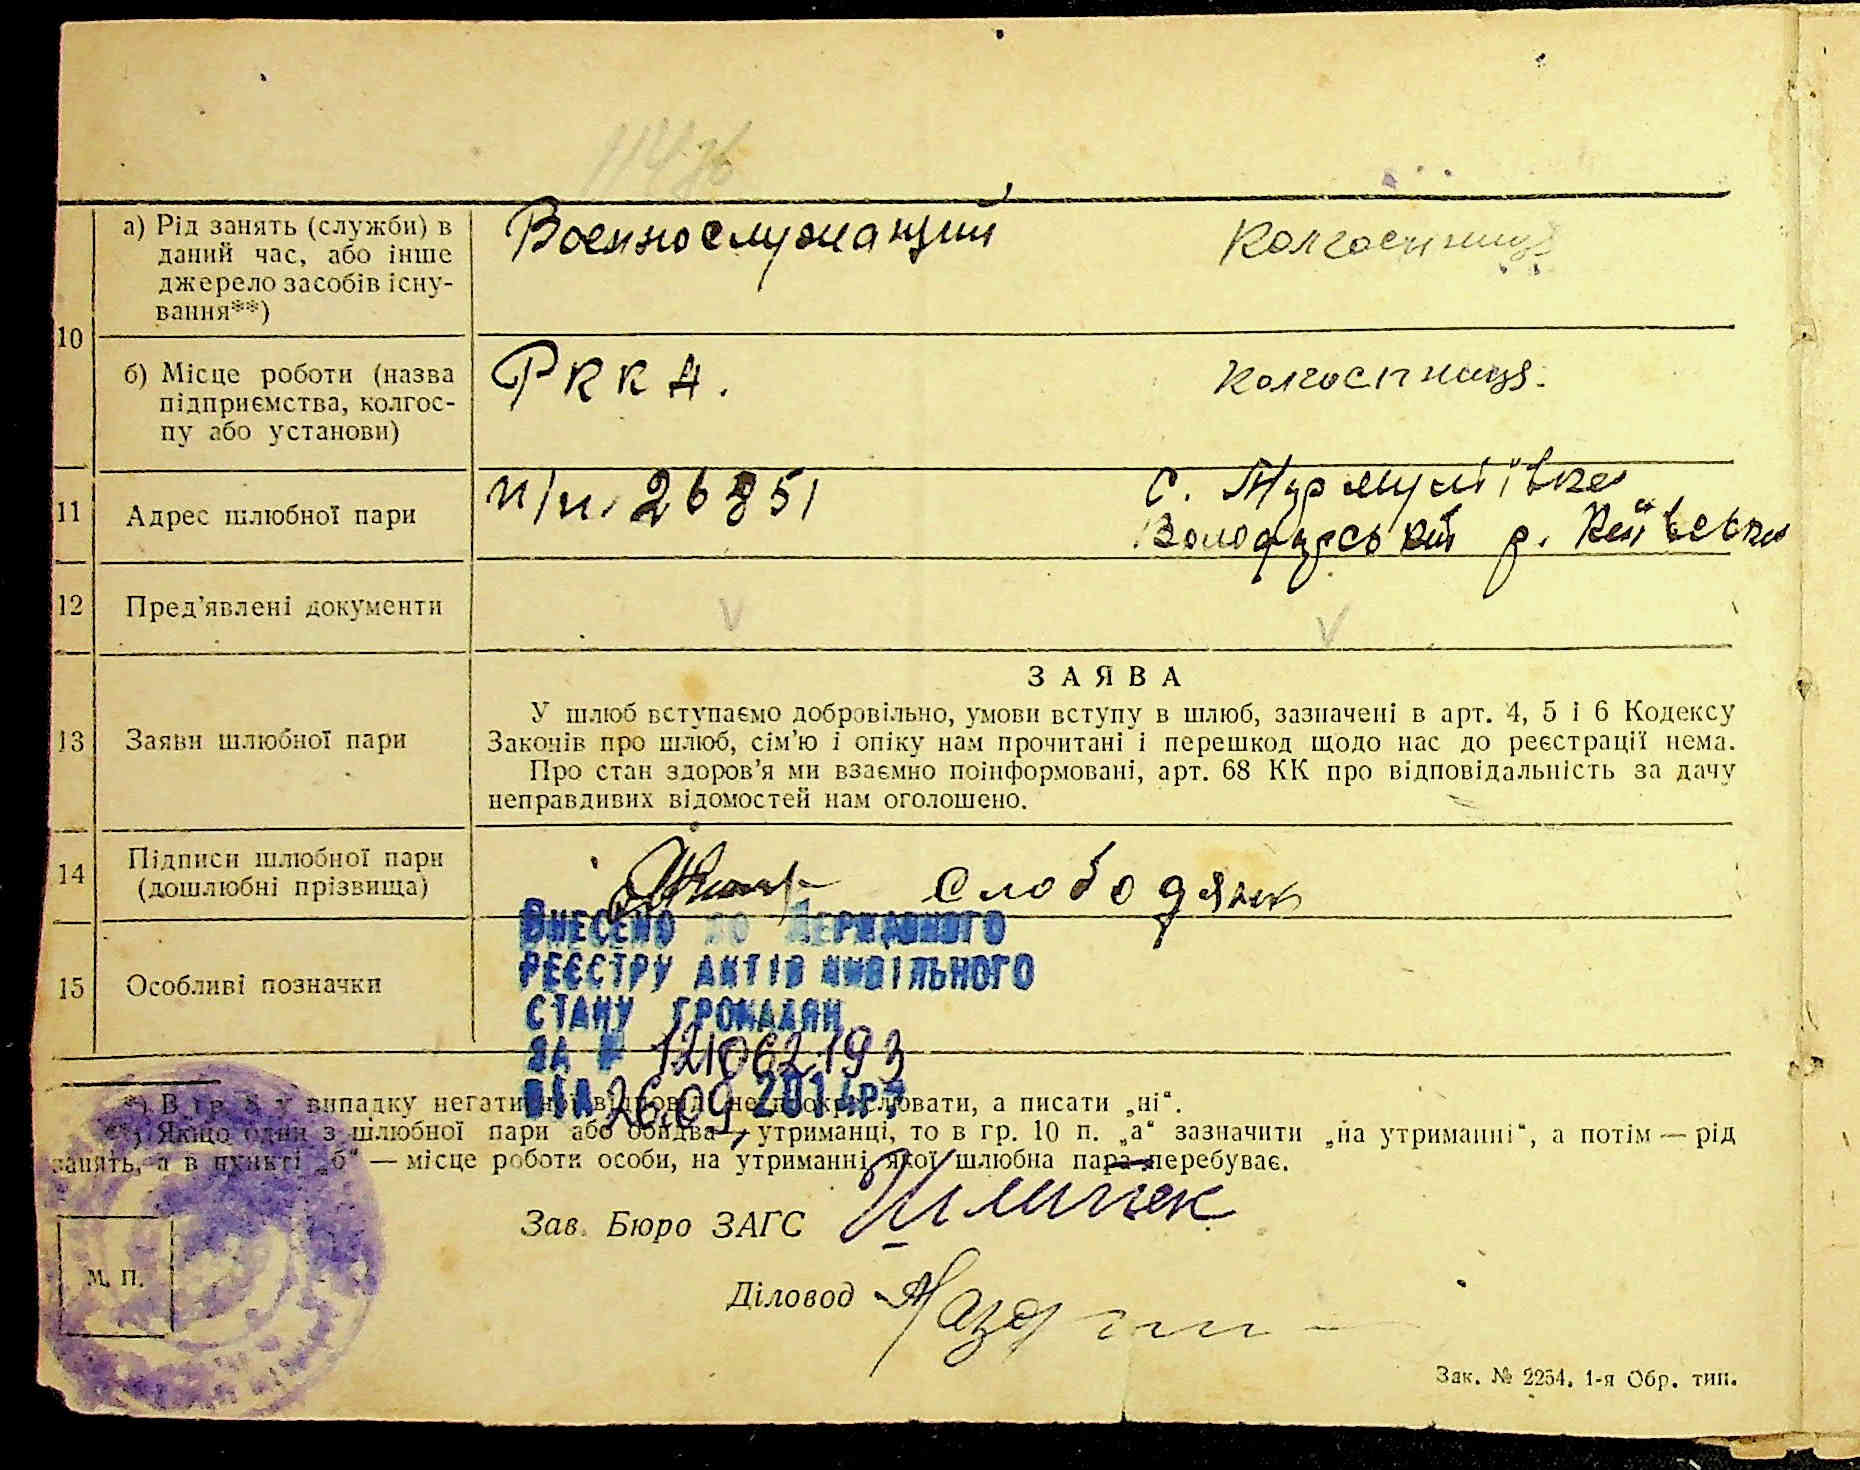 а) Рід занять (служби) в
даний час, або інше
джерело засобів існу-
вання**)
Военнослужащий
Колгоспниця
10
б) Місце роботи (назва
підприємства, колгос-
пу або установи)
РККА.
колгоспниця.
11
Адрес шлюбної пари
п/п. 26851
с.
Володарський р. Київська
12
Пред'явлені документи
V
V
13
Заяви шлюбної пари
ЗАЯВА
У шлюб вступаємо добровільно, умови вступу в шлюб, зазначені в арт. 4, 5 і 6 Кодексу
Законів про шлюб, сім'ю і опіку нам прочитані і перешкод щодо нас до реєстрації нема.
Про стан здоров'я ми взаємно поінформовані, арт. 68 КК про відповідальність за дачу
неправдивих відомостей нам оголошено.
14
Підписи шлюбної пари
(дошлюбні прізвища)
Слободянюк
15
Особливі позначки
ВНЕСЕНО ДО ДЕРЖАВНОГО
РЕЄСТРУ АКТІВ ЦИВІЛЬНОГО
СТАНУ ГРОМАДЯН
ЗА № 121062193
ВІД 26.09.2014р
*) В гр. 8 у випадку негативної відповіді не прокреслювати, а писати „ні“.
**) Якщо один з шлюбної пари або обидва — утриманці, то в гр. 10 п. „а“ зазначити „на утриманні“, а потім — рід
занять, а в пункті „б“ — місце роботи особи, на утриманні якої шлюбна пара перебуває.
Зав. Бюро ЗАГС
М. П.
Діловод
Зак. № 2254. 1-я Обр. тип.